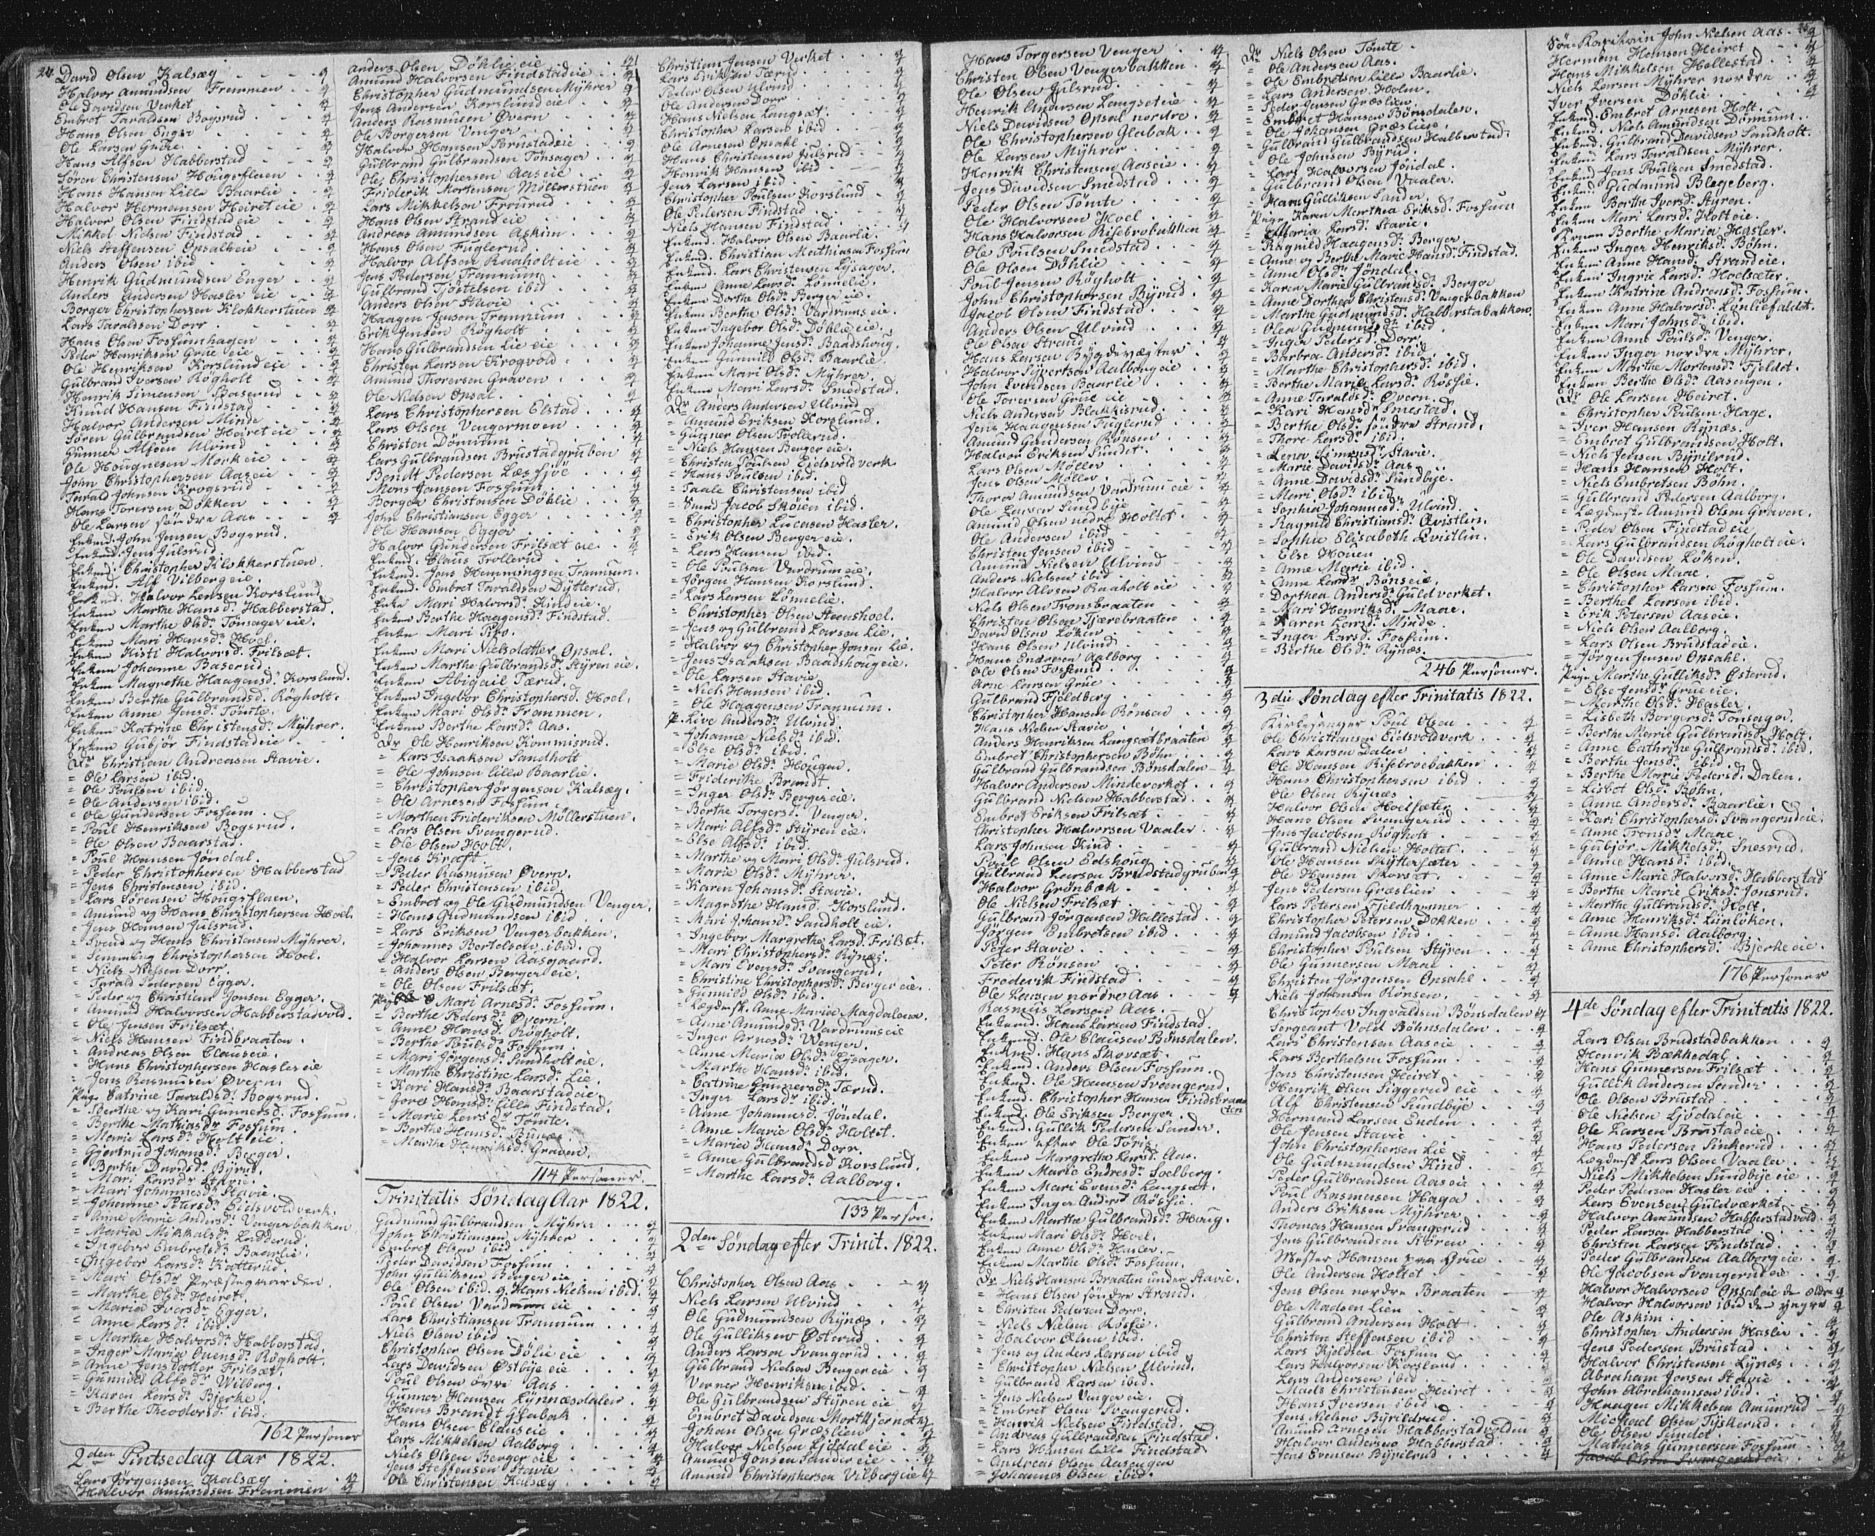 24.
David Olsen Kalsæg - - 4
Halvor Amundsen Fremmen - 4
Ole Davidsen Verket - - 4
Embret Taraldsen Bogsrud - - 4
Hans Olsen Enger - - 4
Ole Larsen Grue - - 4
Hans Alfsen Habberstad - - 4
Sören Christensen Hougsflaen - - 4
Hans Hansen Lille Baarlie - - 4
Halvor Hermansen Heiret eie - - 4
Halvor Olsen Findstad eie - - 4
Mikkel Nielsen Findstad - - 4
Niels Steffensen Opsalseie - - 4
Anders Olsen ibid - - 4
Henrik Gudmundsen Enger - - 4
Anders Andersen Hasler eie - - 4
Borger Christophersen Klokkerstuen - 4
Lars Taraldsen Dorr - - 4
Hans Olsen Fossumhagen - - 4
Peder Henriksen Grue eie - - 4
Ole Henriksen Korslund eie - - 4
Gulbrand Iversen Røgholt - - 4
Henrik Simensen Baserud - - 4
Knud Hansen Findstad - - 4
Halvor Andersen Minde - - 4
Sören Gulbrandsen Heiret eie - - 4
Gunner Alfsen Ulvind - - 4
Ole Hougnesen Mork eie - - 4
John Christophersen Aaseie - - 4
Tarald Johnsen Krogsrud - - 4
Hans Torersen Døkken - - 4
Ole Larsen söndre Aas - - 4
Enkmd. John Jensen Bogsrud.
Enkmd. Jens Julsrud.
Enkmd. Christopher Klokkerstuen.
Enkmd. Alf Vilberg eie.
Enkmd. Halvor Larsen Korslund
Enken Marthe Hansd. Habberstad.
Enken Marthe Olsd. Tonsager eie.
Enken Mari Hansd. Hoel.
Enken Kisti Halvorsd. Frilsæt.
Enken Johanne Baserud.
Enken Magrethe Haagensd. Korslund.
Enken Berthe Gulbransd. Røgholt.
Enken Anne Jensd. Tömte.
Enken Katrine Christensd. Myhrer.
Enken Gubjör Findstad eie.
Dr Christian Andreasen Stavie.
= Ole Larsen ibid.
= Ole Poulsen ibid.
= Ole Andersen ibid.
= Ole Gundersen Fossum.
= Poul Henriksen Bogsrud.
= Ole Olsen Baarstad.
= Poul Hansen Jöndal.
= Peder Christophersen Habberstad
= Jens Christensen ibid.
= Lars Sørensen Hougsflaen.
= Amund og Hans Christophersen Hoel.
= Jens Hansen Julsrud.
= Svend og Hans Christensen Myhrer.
= Christophersen Hoel.
= Niels Nielsen Dorr.
= Tarald Pedersen Egger.
= Peder og Christian Jensen Egger.
= Amund Halvorsen Habberstadvold.
= Ole Jensen Frilsæt.
= Niels Hansen Findbraaten.
= Andreas Olsen Clauseie.
= Hans Christophersen Hasler eie
= Jens Rasmusen Overn.
Pige Catrine Taraldsd. Bogsrud.
= Berthe og Kari Gunnersd. Fossum.
= Berthe Mathiasd. Fossum.
= Marie Larsd. Holt eie.
= Gjertrud Johansd. Berger
= Berthe Davidsd. Byrud.
= Mari Larsd. Stavie.
= Mari Johannesd. Stavie.
= Johanne Larsd. Eidsvoldverk.
= Anne Marie Andersd. Vengerbakken
= Marie Mikkelsd. Lodderud.
= Ingebor Embretsd. Baarlie.
= Ingebor Larsd. Katterud.
= Mari Olsd. Præsegaarden.
= Marthe Olsd. Heiret.
= Maria Iversd. Egger.
= Anne Larsd. ibid.
= Marthe Halvorsd. Habberstad.
= Inger Maria Evensd. Røgholt.
= Anne Jensdatter Frilsæt.
= Gunnild Alfsd. Wilberg.
= Karen Larsd. Bjerke.
= Berthe Theodorsd. ibid.
162 Personer
2den Pintsedag Aar 1822.
Lars Jörgensen Kalsæg - - 4
Halvor Amundsen Fremmen - 4
Anders Olsen Döhlie eie - - 4
Amund Halvorsen Findstad eie - 4
Christopher Gudmundsen Myhrer 4
Jens Andersen Korslund eie - 4
Anders Rasmusen Overn - - 4
Ole Borgersen Venger - - 4
Halvor Hansen Brustadeie - - 4
Gulbrand Gulbrandsen Tonsager - 4
Ole Christophersen Aaseie - - 4
Friderik Mortensen Möllerstuen 4
Lars Mikkelsen Frourud - - 4
Hans Olsen Strand eie - - 4
Andreas Amundsen Askim - - 4
Hans Olsen Fuglerud - - 4
Halvor Alfsen Raaholt eie - - 4
Jens Pedersen Trannum - - 4
Gulbrand Töstelsen ibid - - 4
Anders Olsen Stavie - - 4
Haagen Jensen Trannum - - 4
Erik Jensen Røgholt - - 4
Hans Gulbrandsen Lie eie - - 4
Christen Larsen Krogvold - - 4
Amund Thorersen Graven - - 4
Ole Nielsen Opsal - - 4
Lars Christophersen Elstad - - 4
Lars Olsen Vengermoen - - 4
Christen Dönnum - - 4
Lars Gulbrandsen Brustadgruben 4
Bendt Pedersen Læssöe - - 4
Mons Jansen Fossum - - 4
Borger Christensen Döhlie - - 4
John Christiansen Egger - - 4
Ole Hansen Egger - - 4
Halvor Gundersen Frilsæt eie - 4
Enkmd. Claus Trollerud
Enkmd. Jens Hemmingsen Trannum.
Enkmd. Embret Taraldsen Dytterud.
Enke Mari Halvorsd. Huldeie.
Enken Berthe Haagensd. Findstad.
Enken Mari Piro.
Enken Mari Nielsdatter Opsal.
Enken Marthe Gulbrandsd. Styren eie.
Enken Abigail Tærud.
Enken Ingebor Christophersd. Hoel.
Enken Mari Olsd. Frammen.
Enken Berthe Larsd. Aas.
Dr Ole Henriksen Kommisrud.
= Lars Isaaksen Sandholt
= Ole Johnsen lille Baarlie.
= Christopher Jörgensen Kalsæg.
= Ole Arnesen Fossum
= Morthen Frideriksen Möllerstuen.
= Lars Olsen Svangerud.
= Ole Olsen Holt.
= Jens Kraft.
= Peder Rasmusen Overn.
= Peder Christensen ibid.
= Embret og Ole Gudmundsen Venger.
= Hans Gudmundsen ibid.
= Lars Eriksen Vengerbakken.
= Johannes Bertelsen ibid.
= Halvor Larsen Aasgaard.
= Anders Olsen Berger eie.
= Ole Olsen Frilsæt.
Pige Mari Arnesd. Fossum.
= Berthe Pedersd. Overn.
= Anne Hansd. Røgholt.
= Berthe Poulsd. Fossum.
= Mari Jörgensd. Sundholt eie.
= Marthe Christine Larsd. Lie.
= Kari Hansd. Baarstadeie.
= Gore Hansd. Lille Findstad.
= Marie Larsd. Tömte.
= Berthe Hansd. Linnes.
= Marthe Henriksd. Graven.
114 Personer
Trinitatis Søndag Aar 1822.
Gudmund Gulbrandsen Myhrer - - 4
John Christiansen Myhrer - - 4
Embret Olsen ibid - - 4
Peder Davidsen Fossum - - 4
John Gulliksen Berger eie - - 4
Ole Olsen ibid og Hans Nielsen ibid. 4
Poul Olsen Vardrum eie - - 4
Lars Christiansen Trannum - - 4
Niels Olsen ibid - - 4
Christopher Olsen Dölie eie - - 4
Lars Davidsen Østbye eie - - 4
Poul Olsen övre Aas - - 4
Gunner Hansen Lynnæsdalen - 4
Hans Brandt Glæbak - - 4
Hans Olsen Clauseie - - 4
Lars Mikkelsen Aalborg - - 4
Niels Olsen Berger eie - - 4
Jens Steffensen Stavie - - 4
Ole Christensen Kalsæg - - 4
Christian Jensen Verket - - 4
Lars Eriksen Tærud - - 4
Peder Olsen Ulvind - - 4
Ole Andersen Dorr - - 4
Hans Nielsen Langsæt - - 4
Christopher Larsen ibid - - 4
Ole Arnesen Opsahl - - 4
Hans Christensen Julsrud - - 4
Henrik Hansen ibid - - 4
Jens Larsen ibid - - 4
Christopher Poulsen Korslund - 4
Ole Pedersen Findstad - - 4
Niels Hansen Findstad - - 4
Enkmd. Halvor Olsen Baarlie - 4
Enkmd. Christian Matthiasen Fossum
Enkmd. Lars Christensen Lysager.
Enken Anne Larsd. Lönnelie.
Enken Dorthe Olsd. Berger eie.
Enken Berthe Olsd. Vardrums eie.
Enken Ingebor Olsd. Döhlie eie.
Enken Johanne Jensd. Baadshoug.
Enken Gunnild Olsd. Baarlie.
Enken Mari Olsd. Myhrer.
Enken Mari Larsd. Smedstad.
Dr Anders Andersen Ulvind
= Amund Eriksen Korslund.
= Gunner Olsen Trollerud.
= Niels Hansen Berger eie.
= Christen Poulsen Eidsvold verk.
= Hans Poulsen ibid.
= Paale Christensen ibid.
= Svend Jacob Skoien ibid.
= Christopher Lucasen Hasler.
= Erik Olsen Berger eie.
= Lars Hansen ibid.
= Ole Poulsen Vardrum eie.
= Jörgen Hansen Korslund.
= Lars Larsen Lönnelie.
= Christopher Olsen Steenshoel.
= Jens og Gulbrand Larsen Lie.
= Halvor og Christopher Jonsen Lie.
= Jens Isaksen Baadshougeie.
= Ole Larsen Stavie.
= Niels Hansen ibid.
= Ole Haagensen Trannum.
P. Live Andersd. Ulvind.
= Johanne Nielsd. ibid.
= Else Olsd. ibid.
= Marie Olsd. Hougen.
= Friderike Brandt.
= Inger Olsd. Berger eie.
= Berthe Torgersd. Venger.
= Mari Alfsd. Styren eie.
= Else Alfsd. ibid.
= Marthe og Mari Olsd. Julsrud.
= Marie Olsd. Myhrer.
= Karen Johansd. Stavie.
= Magrethe Hansd. Korslund.
= Mari Johansd. Sandholt eie.
= Ingebor Margrethe Larsd. Frilsæt.
= Mari Christophersd. Rynæs.
= Mari Evensd. Svangerud.
= Christine Christophersd. Berger eie.
= Gunnild Olsd. ibid.
= Lægdensk. Anne Marie Magdalena.
= Anne Amundsd. Vardrumseie
= Inger Arnesd. Venger.
= Anne Maria Olsd. Lysager.
= Marthe Hansd. ibid.
= Catrine Gunnersd. Tærud.
= Inger Larsd. ibid.
= Anne Johannesd. Jöndal.
= Anne Marie Olsd. Holtet.
= Maria Hansd. Dorr.
= Anne Gulbrandsd. Korslund.
= Marthe Larsd. Aalborg.
133 Person.
2den Søndag efter Trinit. 1822.
Christopher Olsen Aas - - 4
Niels Larsen Ulvind - - 4
Ole Gudmundsen Rynæs - - 4
Ole Gulliksen Østerud - - 4
Anders Larsen Svangerud - - 4
Gulbrand Nielsen Berger eie - - 4
Verner Henriksen ibid - - 4
Ole Gulbrandsen Styren eie - - 4
Embret Davidsen Mortkjernet 4
Johan Olsen Græslien - - 4
Halvor Nielsen Gjödal eie - - 4
Amund Jonsen Sander eie - - 4
Amund Christophersen Vilberg eie 4
Hans Torgersen Venger - - 4
Christen Olsen Vengerbakken - 4
Ole Olsen Julsrud - - 4
Henrik Andersen Langseteie - - 4
Niels Davidsen Opsal nordre - 4
Ole Christophersen Glæbak - - 4
Ole Larsen Myhrer - - 4
Henrik Christensen Aaseie - - 4
Jens Davidsen Smedstad - - 4
Peder Olsen Tömte - - 4
Ole Halvorsen Hoel - - 4
Hans Halvorsen Risebrobakken 4
Ole Poulsen Smedstad - - 4
Ole Olsen Döhlie - - 4
Poul Jensen Røgholt - - 4
John Christophersen Byrud - - 4
Jacob Olsen Findstad - - 4
Anders Olsen Ulvind - - 4
Ole Olsen Strand - - 4
Hans Larsen Bygdevægter - - 4
Halvor Sivertsen Aalborg eie - - 4
John Svendsen Baarlie - - 4
Ole Torersen Grue eie - - 4
Niels Andersen Blakkisrud - - 4
Jens Haagensen Fuglerud - - 4
Amund Gundersen Rönsen - - 4
Halvor Eriksen Sundet - - 4
Lars Olsen Möller - - 4
Jens Olsen Möller - - 4
Thorer Amundsen Vardrum eie - 4
Ole Larsen Sundbye - - 4
Amund Olsen nedre Holtet - - 4
Ole Andersen ibid - - 4
Christen Jensen ibid - - 4
Amund Nielsen Ulvind - - 4
Anders Nielsen ibid - - 4
Halvor Alvsen Raaholt eie - - 4
Niels Olsen Tronsbraaten - - 4
Christen Olsen Tjærebraaten - - 4
David Olsen Löken - - 4
Hans Olsen Ulvind - - 4
Hans Endresen Aalborg - - 4
Ole Olsen Fosslund - - 4
Arne Larsen Grue - - 4
Gulbrand Fjeldberg - - 4
Christopher Hansen Rönsen - - 4
Hans Nielsen Stavie - - 4
Anders Henriksen Langsætbraaten 4
Embret Christophersen Böhn - - 4
Gulbrand Gulbrandsen Bönsdalen - 4
Halvor Andersen Mindeverket - 4
Gulbrand Nielsen Habberstad - - 4
Embret Eriksen Frilsæt - - 4
Christopher Halvorsen Vaaler - - 4
Lars Johnsen Kind - - 4
Poul Olsen Eidshoug - - 4
Gulbrand Larsen Brustadgruben 4
Halvor Grönbæk - - 4
Ole Nielsen Frilsæt - - 4
Gulbrand Jörgensen Hallestad - 4
Jörgen Embretsen ibid - - 4
Peter Stavie - - 4
Peter Rönsen - - 4
Frederik Findstad - - 4
Ole Larsen nordre Aas - - 4
Rasmus Larsen Aas - - 4
Enkmd. Hans Larsen Findstad
Enkmd. Ole Clausen Bönsdalen.
Enkmd. Hans Skovsæt.
Enkmd. Anders Olsen Fossum.
Enkmd. Ole Hansen Svangerud.
Enkmd. Christopher Hansen Findsbraaten
Enkmd. Ole Eriksen Berger.
Enkmd. Gullik Pedersen Sander.
Enken efter Ole Toris.
Enken Margrethe Larsd. Aas.
Enken Marie Endresd. Soelberg.
Enken Mari Evensd. Langsæt.
Enken Inger Andersd. Røssie.
Enken Marthe Gulbrandsd. Houg.
Enken Mari Olsd. Hoel.
Enken Anne Olsd. Hasler.
Enken Marthe Olsd. Fossum.
Dr Niels Hansen Braaten under Stavie.
= Hans Olsen söndre Strand.
= Christen Pedersen Dorr.
= Niels Nielsen Røssie.
= Halvor Olsen ibid.
= Jens og Anders Larsen ibid
= Christopher Nielsen Ulvind.
= Gulbrand Larsen ibid.
= Jens Nielsen Venger eie.
= Embret Olsen Svangerud.
= Henrik Nielsen Findstad.
= Andreas Gulbrandsen Findstad.
= Lars Hansen Lille Findstad
= Andreas Olsen Aasengen
= Johannes Olsen ibid.
Dr Niels Olsen Tömte.
= Ole Andersen Aas.
= Ole Embretsen Lille Baarlie.
= Lars Andersen Holm.
= Peder Jensen Græslien.
= Embret Hansen Bönsdalen.
= Ole Johansen Græslien.
= Gulbrand Gulbrandsen Habberstad.
= Ole Johnsen Byrud.
= Lars Halvorsen Jöndal.
= Gulbrand Olsen Vaaler.
= Hans Gulliksen Sander.
Pige Karen Marthea Eriksd. Fossum
= Maria Larsd. Stavie.
= Ragnild Haagensd. Berger.
= Anne og Berthe Marie Hansd. Findstad.
= Anne Olsd. Jöndal.
= Karen Marie Gulbransd. Berger
= Anne Dorthea Christensd. Vengerbakken
= Marthe Gudmundsd. Habberstabakken.
= Olea Gudmundsd. ibid
= Inger Pedersd. Dorr.
= Barbra Andersd. ibid.
= Marthe Christophersd. ibid.
= Berthe Maria Larsd. Røssie.
= Anne Taralds. Overn.
= Kari Hansd. Smestad.
= Berthe Olsd. söndre Strand.
= Thore Larsd. ibid.
= Lena Simensd. Stavie.
= Marie Davidsd. Aas.
= Anne Davidsd. Sundbye.
= Mari Olsd. ibid.
= Sophia Johannesd. Ulvind.
= Ragnild Christiansd. Qvistlin.
= Sophie Elisabeth Qvistlin.
= Else Hoiien
= Anne Marie ibid.
= Anne Larsd. Bönseie.
= Dorthea Andersd. Guldverket.
= Mari Henriksd. Maae.
= Karen Larsd. Minde.
= Inger Larsd. Fossum.
= Berthe Olsd. Rynæs.
246 Personer.
3die Søndag efter Trinitatis 1822.
Kirkesanger Poul Olsen - - 4
Ole Christiansen Eidsvoldverk - 4
Lars Larsen Dalen - - 4
Ole Hansen Risebroebakken - - 4
Hans Christophersen ibid - - 4
Ole Olsen Rynæs - - 4
Halvor Olsen Hoelsæter - - 4
Hans Olsen Svangerud - - 4
Jens Jacobsen Røgholt - - 4
Gulbrand Nielsen Holtet - - 4
Ole Hansen Skyttersæter - - 4
Ole Hansen Skovsæt - - 4
Jens Pedersen Græslien - - 4
Lars Petersen Fjeldhammer - - 4
Christopher Petersen Dokken - - 4
Amund Jacobsen ibid - - 4
Christopher Poulsen Styren - - 4
Ole Gunnersen Maae - - 4
Christen Jörgensen Opsahl - - 4
Niels Johansen Rönsen - - 4
Christopher Ingvaldsen Bönsdalen 4
Sergeant Vold Böhnsdalen - - 4
Lars Christensen Aaseie - - 4
Lars Berthelsen Fossum - - 4
Jens Christensen Heiret - - 4
Henrik Olsen Siggerud eie - - 4
Alf Christensen Sundbye - - 4
Hermand Larsen Enden - - 4
Ole Jensen Stavie - - 4
John Christophersen Lie - - 4
Ole Gudmundsen Kind - - 4
Peder Gulbrandsen Aaseie - - 4
Poul Rasmusen Haga - - 4
Anders Eriksen Myhrer - - 4
Thomas Hansen Svangerud - - 4
Jens Gulbrandsen Styren - - 4
Mester Hansen fra Grue - - 4
Ole Andersen Holtet - - 4
Jens Olsen nordre Braaten - - 4
Ole Madsen Lien - - 4
Gulbrand Andersen Holt - - 4
Christen Steffensen ibid - - 4
Lars Kjeldsen Fossum - - 4
Lars Halvorsen Korslund - - 4
Lars Andersen ibid - - 4
Mads Christensen Heiret - - 4
Hans Iversen ibid - - 4
Jens Nielsen Byrildrud - - 4
Amund Arnesen Habberstadvolden 4
Halvor Andersen Habberstad - - 4
Jens Evensen Byrilrud - - 4
Søe-Kapitain John Nielsen Aas - 4
Herman Hansen Heiret - - 4
Hans Mikkelsen Hollestad - - 4
Niels Larsen Myhrer nordre - - 4
Iver Iversen Döhlie - - 4
Enkmd. Embret Arnesen Holt.
Enkmd. Niels Amundsen Dönnum.
Enkmd. Gulbrand Davidsen Sandholt.
Enkmd. Lars Taraldsen Myhrer.
Enkmd. Jens Poulsen Smedstad.
Enkmd. Gudmund Blegeberg.
Enken Berthe Iversd. Styren.
Enken Mari Larsd. Holt eie.
Konen Berthe Maria Hasler.
Enken Inger Henriksd. Böhn.
Enken Anne Hansd. Strandeie.
Enken Ingrie Larsd. Hoelsæter.
Enken Katrine Andreasd. Fossum.
Enken Anne Halvorsd. Lönliefaldet.
Enken Mari Johnsd. ibid.
Enken Anne Poulsd. Venger.
Enken Inger nordre Myhrer.
Enken Marthe Mortensd. Fjeldet.
Enken Berthe Olsd. Aasengen.
Dr Ole Larsen Heiret.
= Christopher Poulsen Hage.
= Iver Hansen Rynæs.
= Embret Gulbrandsen Holt.
= Niels Jensen Byrilrud.
= Hans Hansen Holt.
= Niels Embretsen Böhn.
= Gulbrand Pedersen Aalborg.
= Lægdmst. Amund Olsen Graven.
= Peder Olsen Findstad eie.
= Lars Gulbrandsen Røgholt eie.
= Ole Davidsen Löken.
= Ole Olsen Maae.
= Christopher Larsen Fossum.
= Berthel Larsen ibid.
= Erik Petersen Aaseie.
= Niels Olsen Aalborg.
= Lars Olsen Brustadeie.
= Jörgen Jensen Opsahl.
Pige Marthe Gulliksd. Østerud.
= Else Jensd. Grue eie.
= Marthe Olsd. Hasler.
= Lisbeth Borgersd. Tonsager.
= Berthe Marie Gulbrandsd. Holt.
= Anne Cathrine Gulbrandsd. ibid.
= Berthe Jensd. ibid.
= Berthe Marie Pedersd. Dalen.
= Lisbet Olsd. Böhn.
= Anne Andersd. Baarlie.
= Kari Christophersd. Svangerud eie.
= Anne Tronsd. Maae.
= Gubjör Mikkelsd. Snesrud.
= Anne Hansd. ibid.
= Anne Marie Halvorsd. Habberstad
= Berthe Marie Eriksd. Jonsrud.
= Marthe Gulbrandsd. Holt.
= Anne Henriksd. Lunlöken.
= Anne Hansd. Aalborg.
= Anne Christophersd. Bjerke eie.
176 Personer
4de Søndag efter Trinitatis 1822.
Lars Olsen Brustadbakken - - 4
Henrik Bækkedal - - 4
Hans Gunnersen Frilsæt - - 4
Gullik Andersen Sander - - 4
Ole Olsen Brustad - - 4
Ole Nielsen Gjödal eie - - 4
Ole Larsen Brustad eie - - 4
Hans Pedersen Sinkerud - - 4
Lægdmst. Lars Olsen Vaaler - - 4
Niels Mikkelsen Sundbye eie - - 4
Peder Pedersen Hasler eie - - 4
Lars Evensen Guldværket - - 4
Halvor Amundsen Habberstadvold 4
Peder Larsen Habberstad - - 4
Christen Larsen Findstad - - 4
Peder Gulbrandsen Aalborg eie - 4
Ole Jacobsen Svangerud eie - - 4
Halvor Halvorsen Opsaleie den eldre 4
Halvor Halvorsen ibid den yngre 4
Ole Askim - - 4
Christopher Andersen Hasler - - 4
Jens Pedersen Brustad - - 4
Halvor Christensen Lynæs - - 4
Abraham Jonsen Stavie - - 4
John Abrahamsen ibid - - 4
Haagen Mikkelsen Amunrud - - 4
Michael Olsen Tyskerud - - 4
Ole Olsen Sundet - - 4
Mathias Gunnersen Fossum - - 4
Jacob Olsen Svangerud eie - - 4